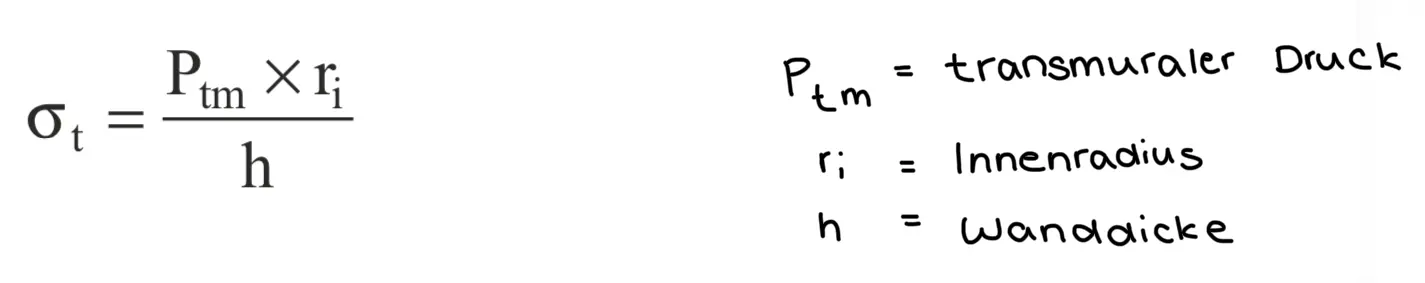 σt = Ptm × ri / h
Ptm = transmuraler Druck
ri = Innenradius
h = Wanddicke